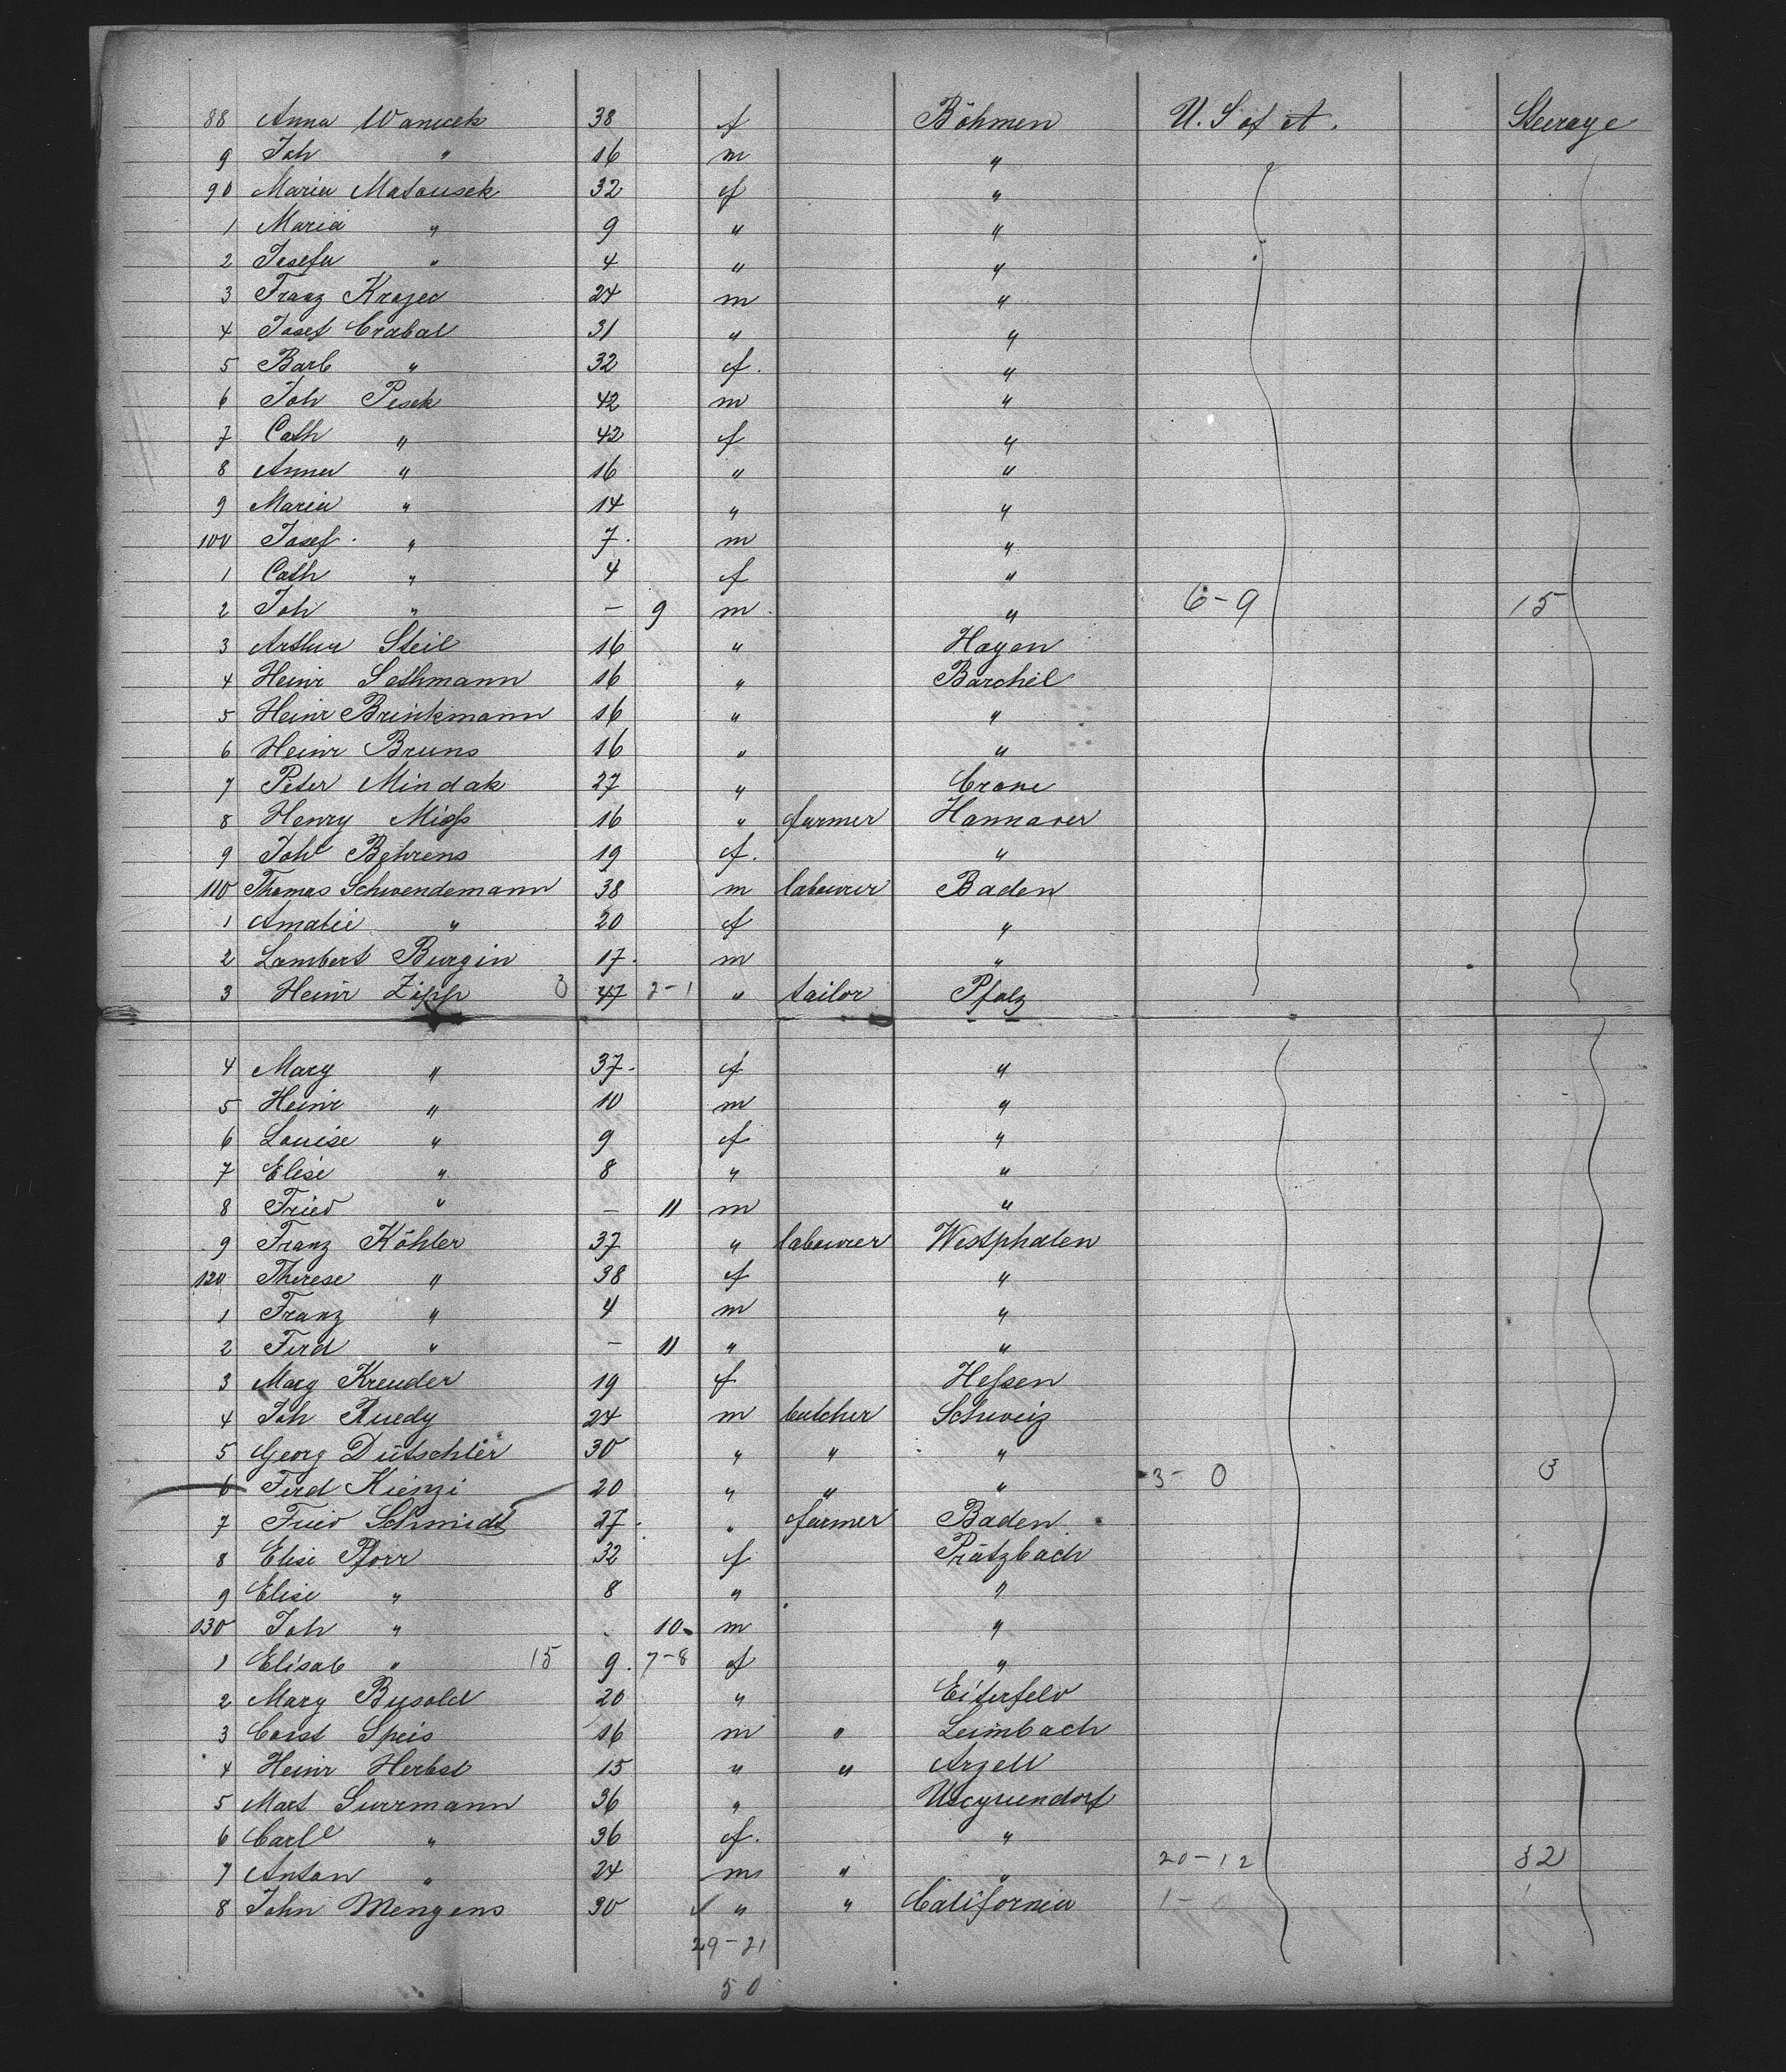 88 Anna Wanicek 38 f Böhmen U. S of A. Steerage
9 Joh " 16 m "
90 Maria Matousek 32 f "
1 Maria " 9 " "
2 Josefa " 4 " "
3 Franz Krajec 24 m "
4 Josef Crabal 31 " "
5 Barb " 32 f. "
6 Joh Pesek 42 m "
7 Cath " 42 f "
8 Anna " 16 " "
9 Maria " 14 " "
100 Josef. " 7. m "
1 Cath " 4 f "
2 Joh " – 9 m " 6-9 15
3 Arthur Steil 16 " Hagen
4 Heinr Sethmann 16 " Barchel
5 Heinr Brinkmann 16 " "
6 Heinr Bruns 16 " "
7 Peter Mindak 27 " Crone
8 Henry Miss 16 " farmer Hannover
9 Johe Behrens 19 f. "
110 Thomas Schwendemann 38 m labourer Baden
1 Amalie " 20 f "
2 Lambert Burgin 17. m "
3 Heinr Zipp 3 47 2-1 " tailor Pfalz
4 Mary " 37. f "
5 Heinr " 10 m "
6 Louise " 9 f "
7 Elise " 8 " "
8 Fried " – 11 m "
9 Franz Köhler 37 " labourer Westphalen
120 Therese " 38 f "
1 Franz " 4 m "
2 Ferd " – 11 " "
3 Marg Kreuder 19 f Hessen
4 Joh Ruedy 24 m butcher Schweiz
5 Georg Dütschler 30 " " "
6 Ferd Kienzi 20 " " " 3-0 3
7 Fried Schmidt 27. " farmer Baden
8 Elise Pforr 32 f Prätzbach
9 Elise " 8 " "
130 Joh " 10 m "
1 Elisab " 15 9. 7-8 f "
2 Mary Busold 20 " Eiterfeld
3 Const Speis 16 m " Leimbach
4 Heinr Herbst 15 " " Arzell
5 Mart Surrmann 36 "
6 Carle " 36 f. "
7 Anton " 24 m " " 20-12 32
8 John Mengens 30 " " California 1-
29-21
50